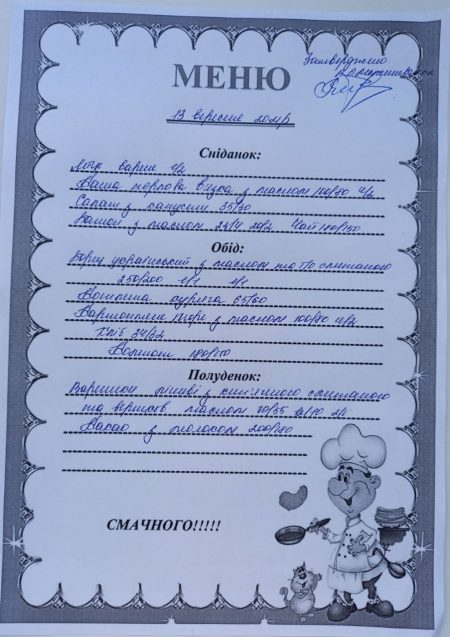 Затверджено
МЕНЮ
13 вересня 2021р
Сніданок:
Яйце варене 1/2
Каша перлова в'язка з маслом 100/80 4/2
Салат з капусти 35/30
Батон з маслом 25/4 Чай 180/150
Обід:
Борщ український з маслом та сметаною
250/200
Котлета куряча 65/60
Картопляне пюре з маслом 100/80 4/2
Хліб 34/22
Компот 180/150
Полуденок:
Вареники ліниві з сметаною
та вершков. маслом 70/55
Какао з молоком 200/180
СМАЧНОГО!!!!!